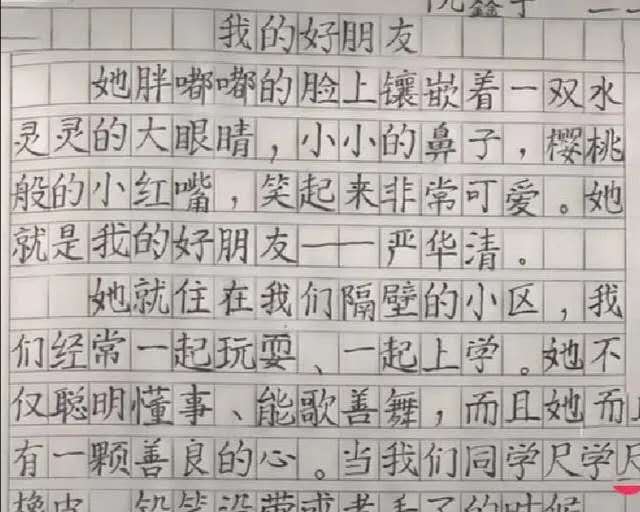 我的好朋友
她胖嘟嘟的脸上镶嵌着一双水
灵灵的大眼睛，小小的鼻子，樱桃
般的小红嘴，笑起来非常可爱。她
就是我的好朋友——严华清。
她就住在我们隔壁的小区，我
们经常一起玩耍、一起上学。她不
仅聪明懂事、能歌善舞，而且她而且
有一颗善良的心。当我们同学尺学尺
橡皮、铅笔没带或者丢了的时候